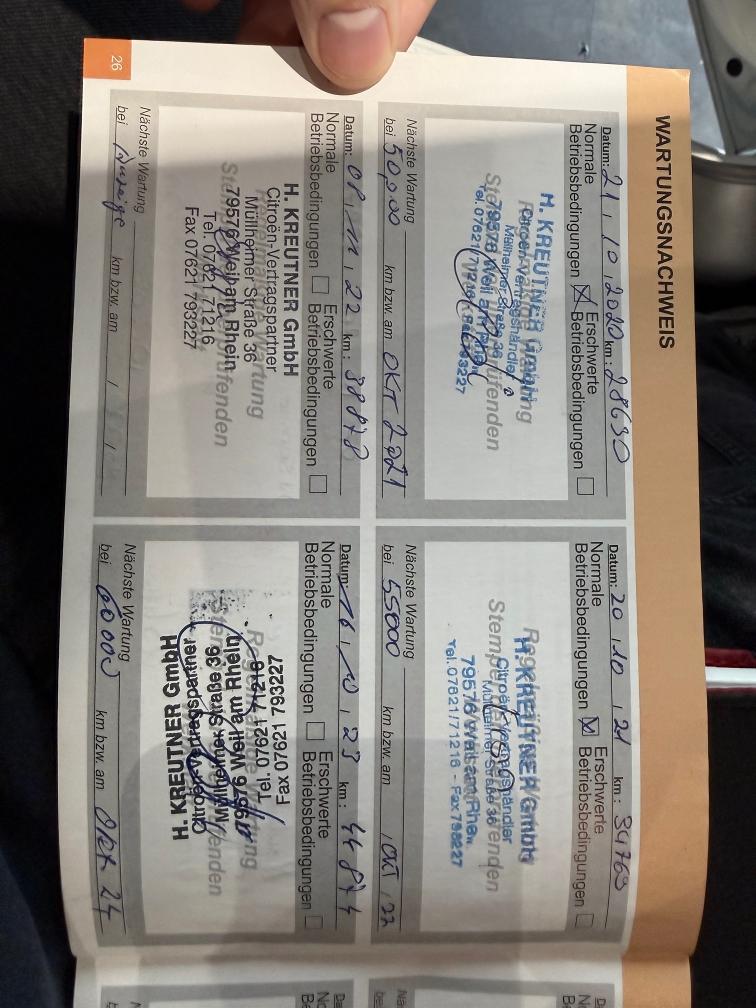 WARTUNGSNACHWEIS
Datum: 21.10.2020 km: 28630
Normale Betriebsbedingungen ☒ Erschwerte Betriebsbedingungen ☐
H. KREUTNER GmbH
Citroën-Vertragshändler
Müllheimer Straße 36
79576 Weil am Rhein
Tel. 07621/71216 - Fax 793227
Nächste Wartung
bei 50000 km bzw. am OKT 2021
Datum: 20.10.21 km: 34763
Normale Betriebsbedingungen ☒ Erschwerte Betriebsbedingungen ☐
H. KREUTNER GmbH
Citroën-Vertragshändler
Müllheimer Straße 36
79576 Weil am Rhein
Tel. 07621/71216 - Fax 793227
Nächste Wartung
bei 55000 km bzw. am Okt. 22
Datum: 08.11.22 km: 38878
Normale Betriebsbedingungen ☐ Erschwerte Betriebsbedingungen ☐
H. KREUTNER GmbH
Citroën-Vertragspartner
Müllheimer Straße 36
79576 Weil am Rhein
Tel. 07621 71216
Fax 07621 793227
Nächste Wartung
bei Anzeige km bzw. am / /
Datum: 16.10.23 km: 44874
Normale Betriebsbedingungen ☐ Erschwerte Betriebsbedingungen ☐
H. KREUTNER GmbH
Citroën-Vertragspartner
Müllheimer Straße 36
79576 Weil am Rhein
Tel. 07621 71216
Fax 07621 793227
Nächste Wartung
bei 60000 km bzw. am Okt. 24
26